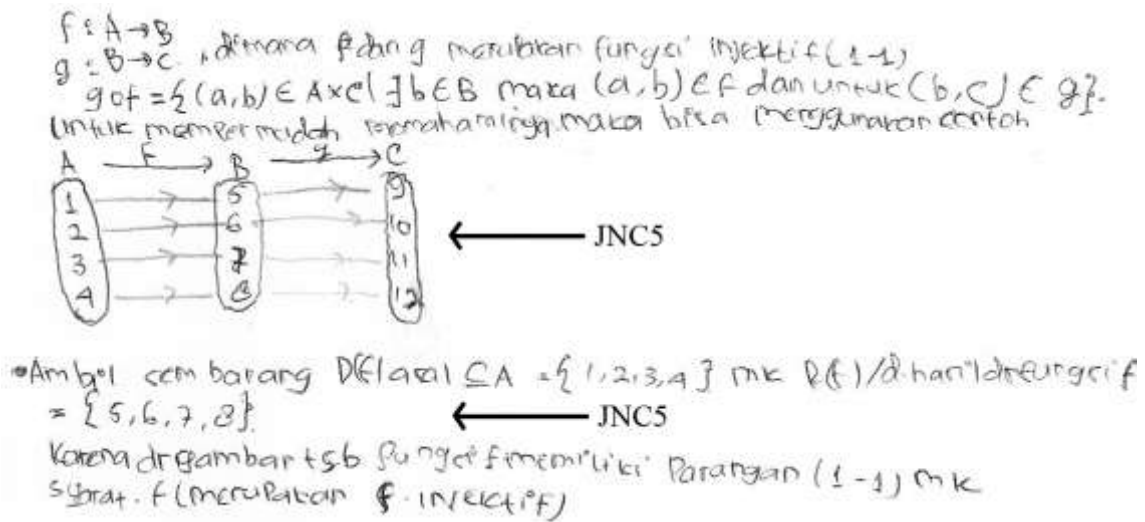 f : A → B
g : B → C , dimana f dan g merupakan fungsi injektif (1-1)
gof = {(a,b) ∈ A×C | ∃b∈B maka (a,b) ∈ f dan untuk (b,c) ∈ g}.
Untuk mempermudah memahaminya maka bisa menggunakan contoh
A f B g C
1 5 9
2 6 10
3 7 11
4 8 12
← JNC5
•Ambil sembarang D(f)asal ⊆ A = {1,2,3,4} mk R(f)/d.hasil dr fungsi f
= {5,6,7,8}.
← JNC5
Karena dr gambar tsb fungsi f memiliki Pasangan (1-1) mk
syarat. f (merupakan f. injektif)